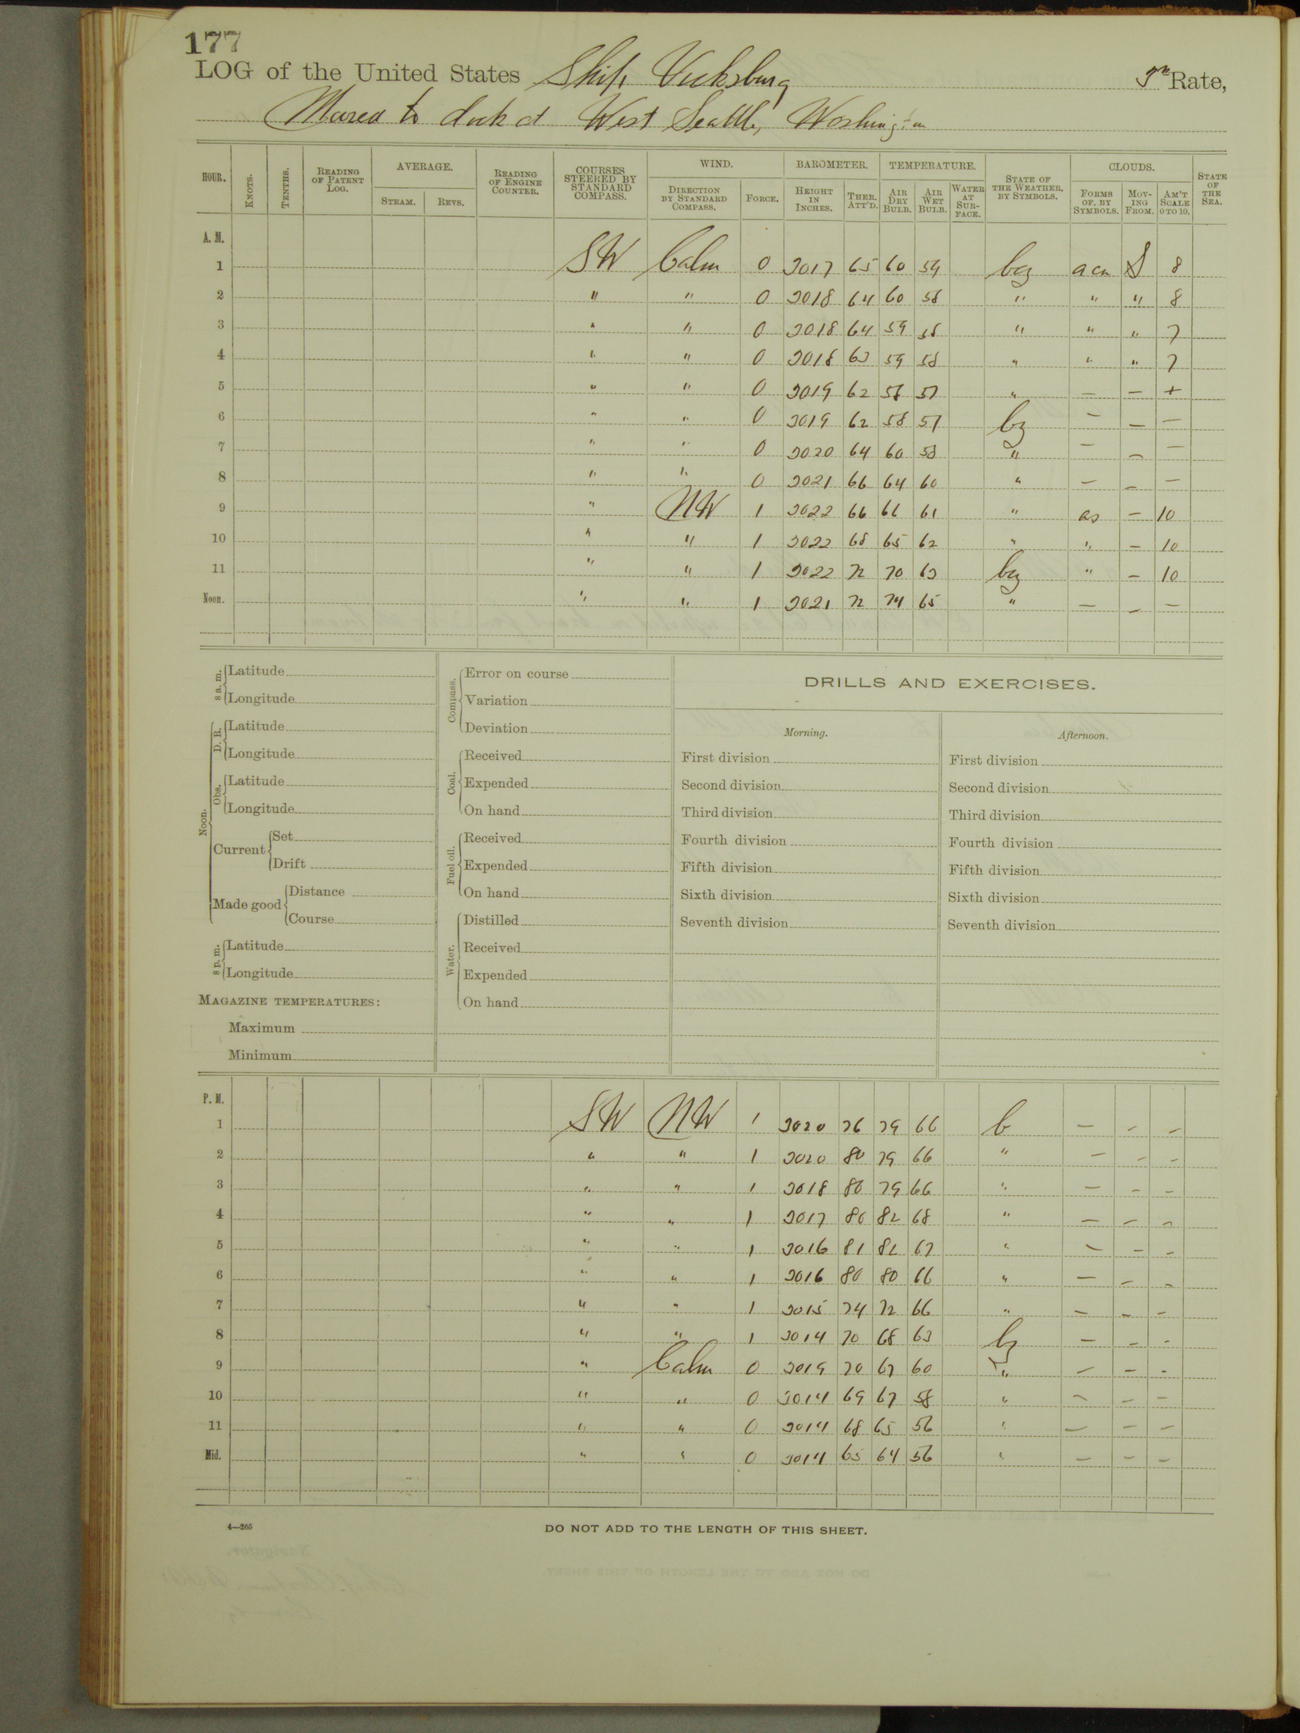 177
LOG of the United States Ship Vicksburg 3rd Rate,
Moored to dock at West Seattle, Washington
HOUR. KNOTS. TENTHS. READING OF PATENT LOG. AVERAGE. STEAM. REVS. READING OF ENGINE COUNTER. COURSES STEERED BY STANDARD COMPASS. WIND. DIRECTION BY STANDARD COMPASS. FORCE. BAROMETER. HEIGHT IN INCHES. THER. ATT'D. TEMPERATURE. AIR DRY BULB. AIR WET BULB. WATER AT SURFACE. STATE OF THE WEATHER, BY SYMBOLS. CLOUDS. FORMS OF, BY SYMBOLS. MOVING FROM. AM'T SCALE 0 TO 10. STATE OF THE SEA.
A. M.
1 SW Calm 0 3017 65 60 59 bcz acu S 8
2 " " 0 3018 64 60 58 " " " 8
3 " " 0 3018 64 59 58 " " " 7
4 " " 0 3018 63 59 58 " " " 7
5 " " 0 3019 62 58 57 " — — +
6 " " 0 3019 62 58 57 bz — — —
7 " " 0 3020 64 60 58 " — — —
8 " " 0 3021 66 64 60 " — — —
9 " NW 1 3022 66 61 " as — 10
10 " " 1 3022 68 65 62 " " — 10
11 " " 1 3022 72 70 63 bcz " — 10
Noon. " " 1 3021 72 74 65 " — — —
8 a. m. Latitude
Longitude
Noon. D. R. Latitude
Longitude
Obs. Latitude
Longitude
Current Set
Drift
Made good Distance
Course
8 p. m. Latitude
Longitude
MAGAZINE TEMPERATURES:
Maximum
Minimum
Compass. Error on course
Variation
Deviation
Coal. Received
Expended
On hand
Fuel oil. Received
Expended
On hand
Water. Distilled
Received
Expended
On hand
DRILLS AND EXERCISES.
Morning.
First division
Second division
Third division
Fourth division
Fifth division
Sixth division
Seventh division
Afternoon.
First division
Second division
Third division
Fourth division
Fifth division
Sixth division
Seventh division
P. M.
1 SW NW 1 3020 76 79 66 b — — —
2 " " 1 3020 80 79 66 " — — —
3 " " 1 3018 80 79 66 " — — —
4 " " 1 3017 80 82 68 " — — —
5 " " 1 3016 81 82 67 " — — —
6 " " 1 3016 80 80 66 " — — —
7 " " 1 3015 74 72 66 " — — —
8 " " 1 3014 70 68 63 bz — — —
9 " Calm 0 3014 70 67 60 " — — —
10 " " 0 3014 69 67 58 " — — —
11 " " 0 3014 68 65 56 " — — —
Mid. " " 0 3014 65 64 56 " — — —
4—265
DO NOT ADD TO THE LENGTH OF THIS SHEET.